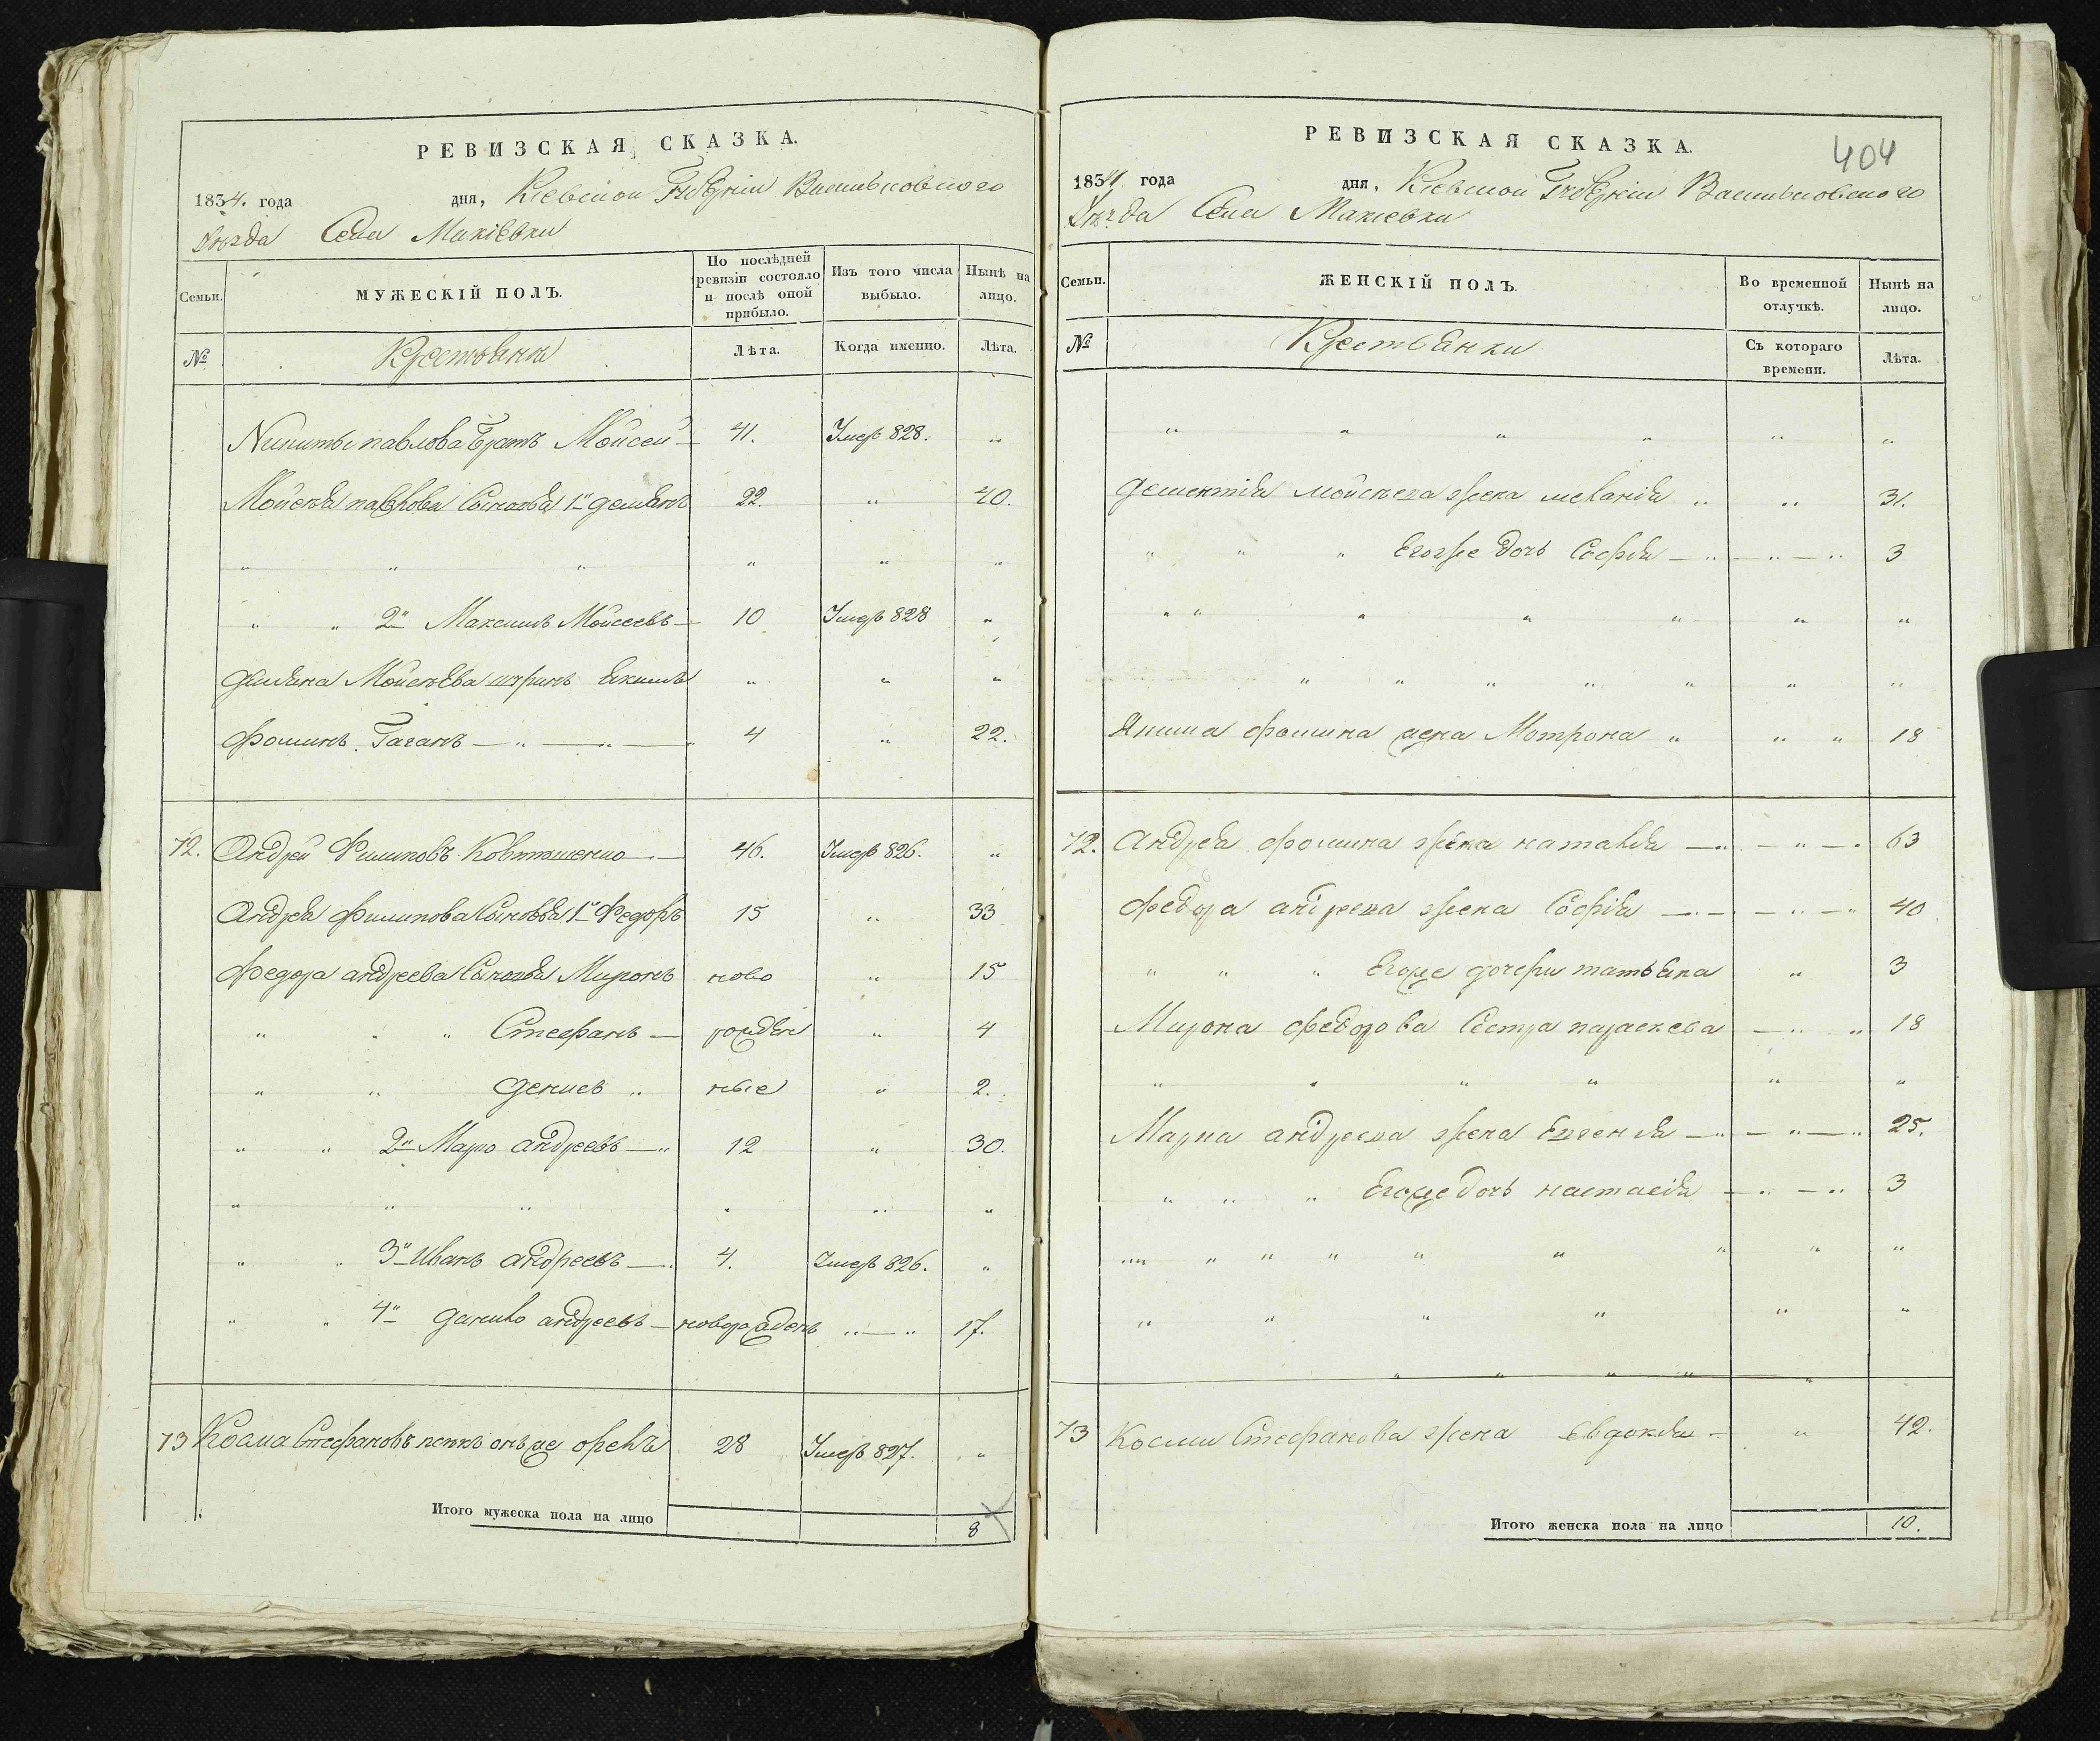 РЕВИЗСКАЯ СКАЗКА.
1834. года дня, Кіевской Губерніи Васильковского
Уезда Села Макіевки
Семьи. МУЖЕСКІЙ ПОЛЪ. По послѣдней ревизіи состояло и послѣ оной прибыло. Изъ того числа выбыло. Нынѣ на лицо.
№ Крестьяне Лѣта. Когда именно. Лѣта.
Никиты павлова братъ Мойсей 41. Умеръ 828. "
Мойсея павлова Сыновья 1й демянъ 22. " 40.
" " " " " "
" " 2й Максимъ Мойсеевъ 10 Умеръ 828 "
демяна Мойсеева Якимъ " " "
Фоминъ. Гаганъ 4 " 22.
72. Андрей Филиповъ Ковташенко 46. Умеръ 826. "
Андрея филипова Сыновья 1й Федоръ 15 " 33
Федора андреева Сыновья Миронъ ново " 15
" " " Стефанъ рожден " 4
" " денисъ " ные " 2.
" " 2й Марко андреевъ 12 " 30.
" " " " " "
" " 3й Иванъ андреевъ 4. Умеръ 826. "
" " 4й данило андреевъ новорожденъ " " 17.
73 Косма Стефановъ онже орелъ 28 Умеръ 827. "
Итого мужеска пола на лицо 8
404
РЕВИЗСКАЯ СКАЗКА.
1834 года дня, Кіевской Губерніи Васильковского
Уезда Села Макіевки
Семьи. ЖЕНСКІЙ ПОЛЪ. Во временной отлучкѣ. Нынѣ на лицо.
№ Крестьянки Съ котораго времени. Лѣта.
" " " " " "
мойсеева жена меланія " " 31.
" " " Егоже дочь Софія " " " 3
" " " " " " "
" " " " " " "
Якима фомина жена Мотрона " " " 18
72. андрея фомина жена наталія " " " 63
федора андреева жена Софія " " 40
" " " Егоже дочери татьяна " 3
Мирона федорова Сестра параскева " " 18
" " " " " "
Марка андреева жена Евгенія " " " 25.
" " " Егоже дочь настасія " " 3
" " " " " " " " "
" " " " " "
" " " " "
73 Космы Стефанова жена Евдокія " 42.
Итого женска пола на лицо 10.